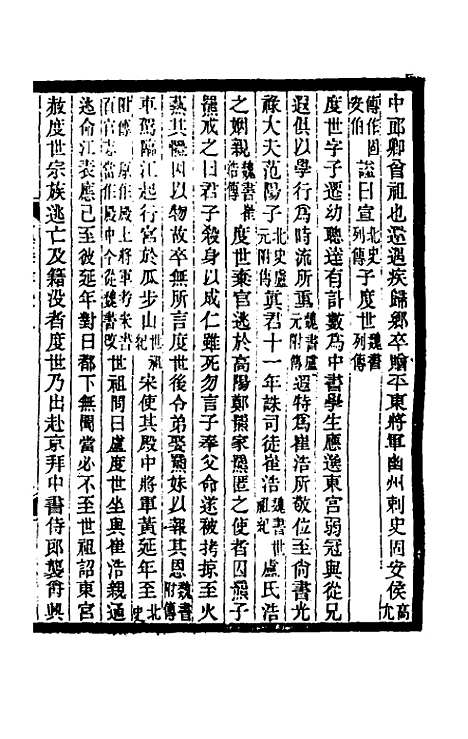 中郎卿曾祖也還遇疾歸鄉卒贈平東將軍幽州刺史固安侯高允
傳作固安伯諡曰宣北史列傳子度世魏書列傳
度世字子遷幼聰達有計數爲中書學生應選東宮弱冠與從兄
遐俱以學行爲時流所重魏書盧元附傳遐特爲崔浩所敬位至尙書光
祿大夫范陽子北史盧元附傳眞君十一年誅司徒崔浩魏書世祖紀盧氏浩
之姻親魏書崔浩傳度世棄官逃於高陽鄭羆家羆匿之使者囚羆子
羆戒之曰君子殺身以成仁雖死勿言子奉父命遂被拷掠至火
爇其體因以物故卒無所言度世後令弟娶羆妹以報其恩魏書附傳
車駕臨江起行宮於瓜步山世祖紀宋使其殿中將軍黃延年至北史
附傳 原作殿上將軍考宋書百官志當作殿中今從魏書改世祖問曰盧度世坐與崔浩親通
逃命江表應已至彼延年對曰都下無聞當必不至世祖詔東宮
赦度世宗族逃亡及籍没者度世乃出赴京拜中書侍郎襲爵興